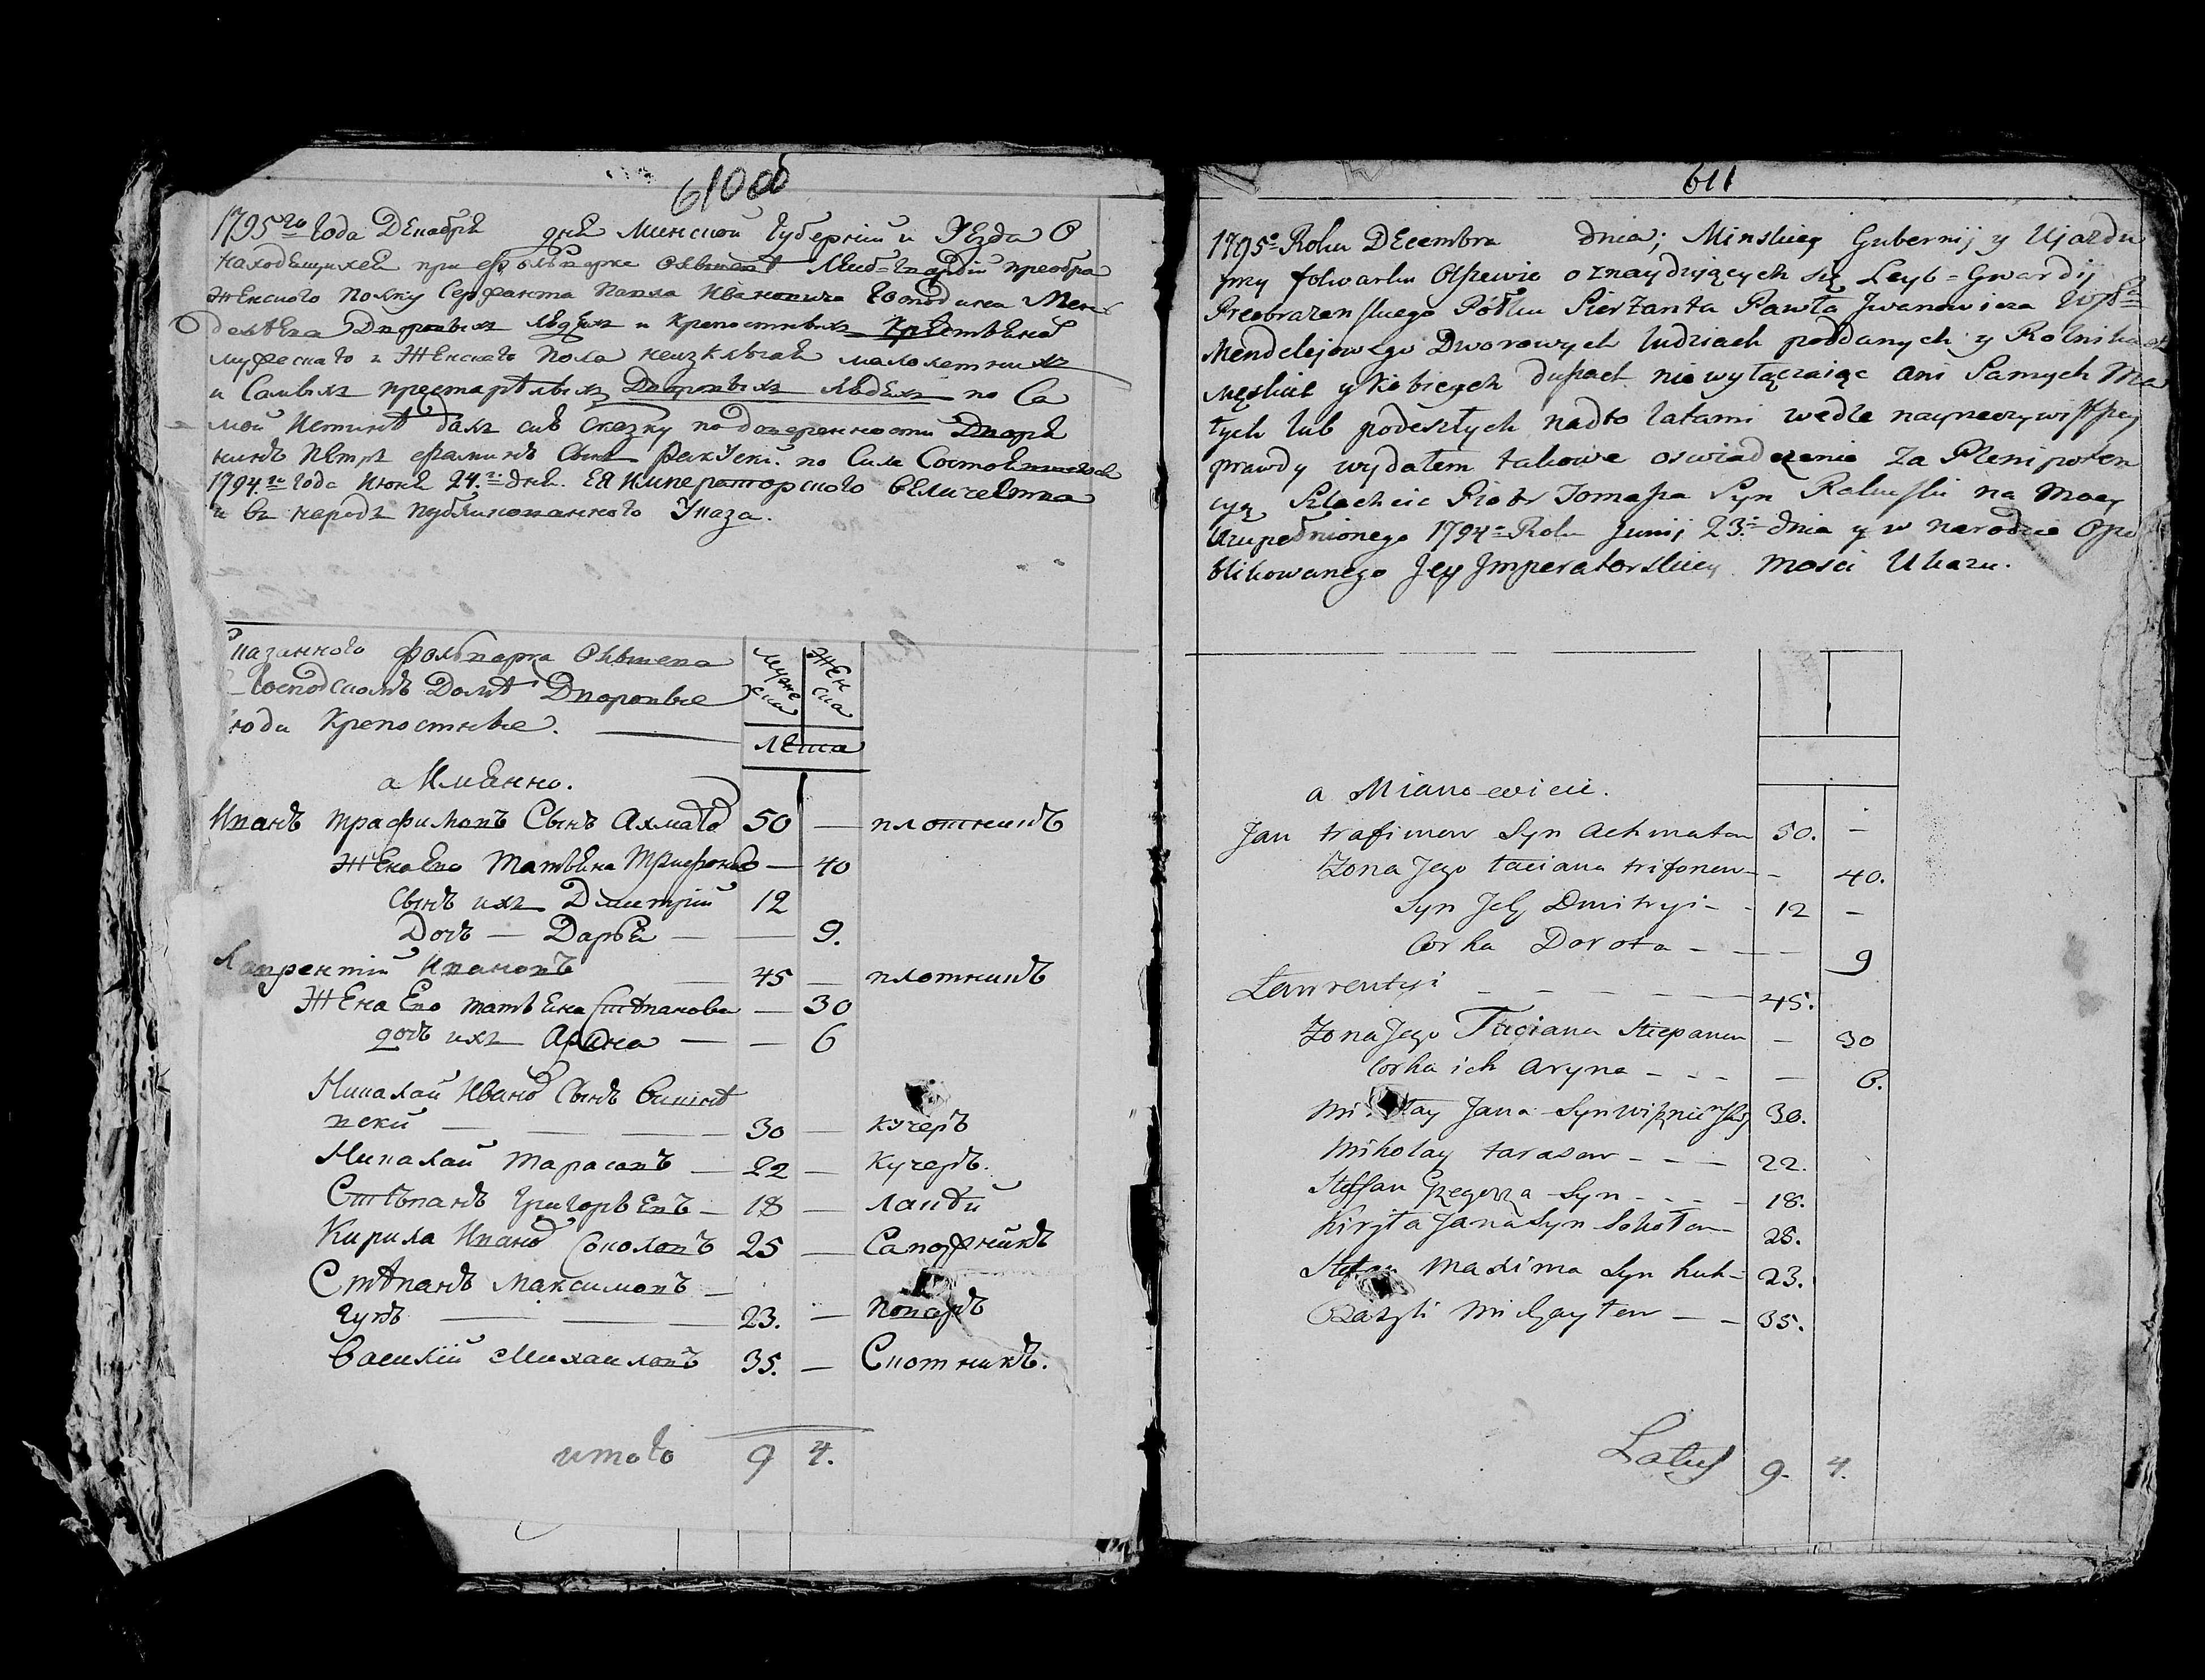 610об
1795го Года Декабря дня Минской Губернии и Уезда О
находящихся при фольварке Лейб=Гвардии преобра
женского полку Сержанта Павла Ивановича Господина Мен
делеева Дворовых людех и крепостных крестьяне
мужеска го и Женскаго пола неизключая малолетних
и Самых престарелых Дворовых людех по Са
мой Истинне дал сию Сказку по доверенности Дворя
нинъ Петръ Сынъ по Силе
1794го Года Июня 24го дня. Ея Императорского величества
и въ народъ публикованного Указа.
фольварка
Господскомъ Доме Дворовые
люди Крепостные.
Муже ска
Жен ска
лета
а Имянно.
Иванъ трафимовъ Сынъ Ахматов 50 — плотникъ
Жена Ево Татьяна Трифонова — 40
Сынъ ихъ Дмитрий 12
Дочь — Дарья — — 9.
Лаврентий Ивановъ — 45 — плотникъ
Жена Ево татьяна Степанова — 30
дочь ихъ Арина — — 6
Николай Иванов Сынъ Вишне
вски — — — 30 — кучеръ
Николай Тарасовъ — 22 — кучеръ.
Степанъ Григорьевъ — 18 — лакей
Кирила Иванов Соколовъ 25 — Сапожникъ
Степанъ Максимовъ —
— — 23. — поваръ
Василий Михаиловъ 35. — Скотникъ.
итого 9 4.
611
1795o Roku Decembra dnia; Minskiey Gubernij y Ujazdu
przy folwarku Olszewie o znaydujących się Leyb=Gwardij
Preobrazenskiego Półku Sierżanta Pawła Iwanowicza
Mendelejowego Dworowych ludziach poddanych y Rolnikach
męskich y kobiecych duszach niewyłączaiąc ani Samych Ma
łych lub podeszłych nadto latami wedle nayrzeczywistszey
prawdy wydałem takowe oswiadczenie Za Plenipoten
cyą Szlachcic Piotr Tomasza Syn Rakuski na Mocy
Uzupełnionego 1794o Roku Junij 23o dnia y w narodzie Opu
blikowanego Jey Jmperatorskiey Mosci Ukazu.
a Mianowicie.
Jan trafimow Syn Achmatow 50. —
Żona Jego taciana trifonow — — 40.
Syn Jch Dmitryi — — 12 —
Corka Dorota — — — 9
Lawrentyi — — — — — 45.
Żona Jego Taciana Stiepanow — 30
Corka ich Aryna — — — — 6.
Mikołay Jana Syn 30.
Mikołay tarasow — — — 22.
Steffan Grzegorza Syn — — — 18.
Kiryła Jana Syn Sokołow — 25.
Stefan Maxima Syn Kuk — 23.
Bazyli Michayłow — — 35.
Latus 9. 4.